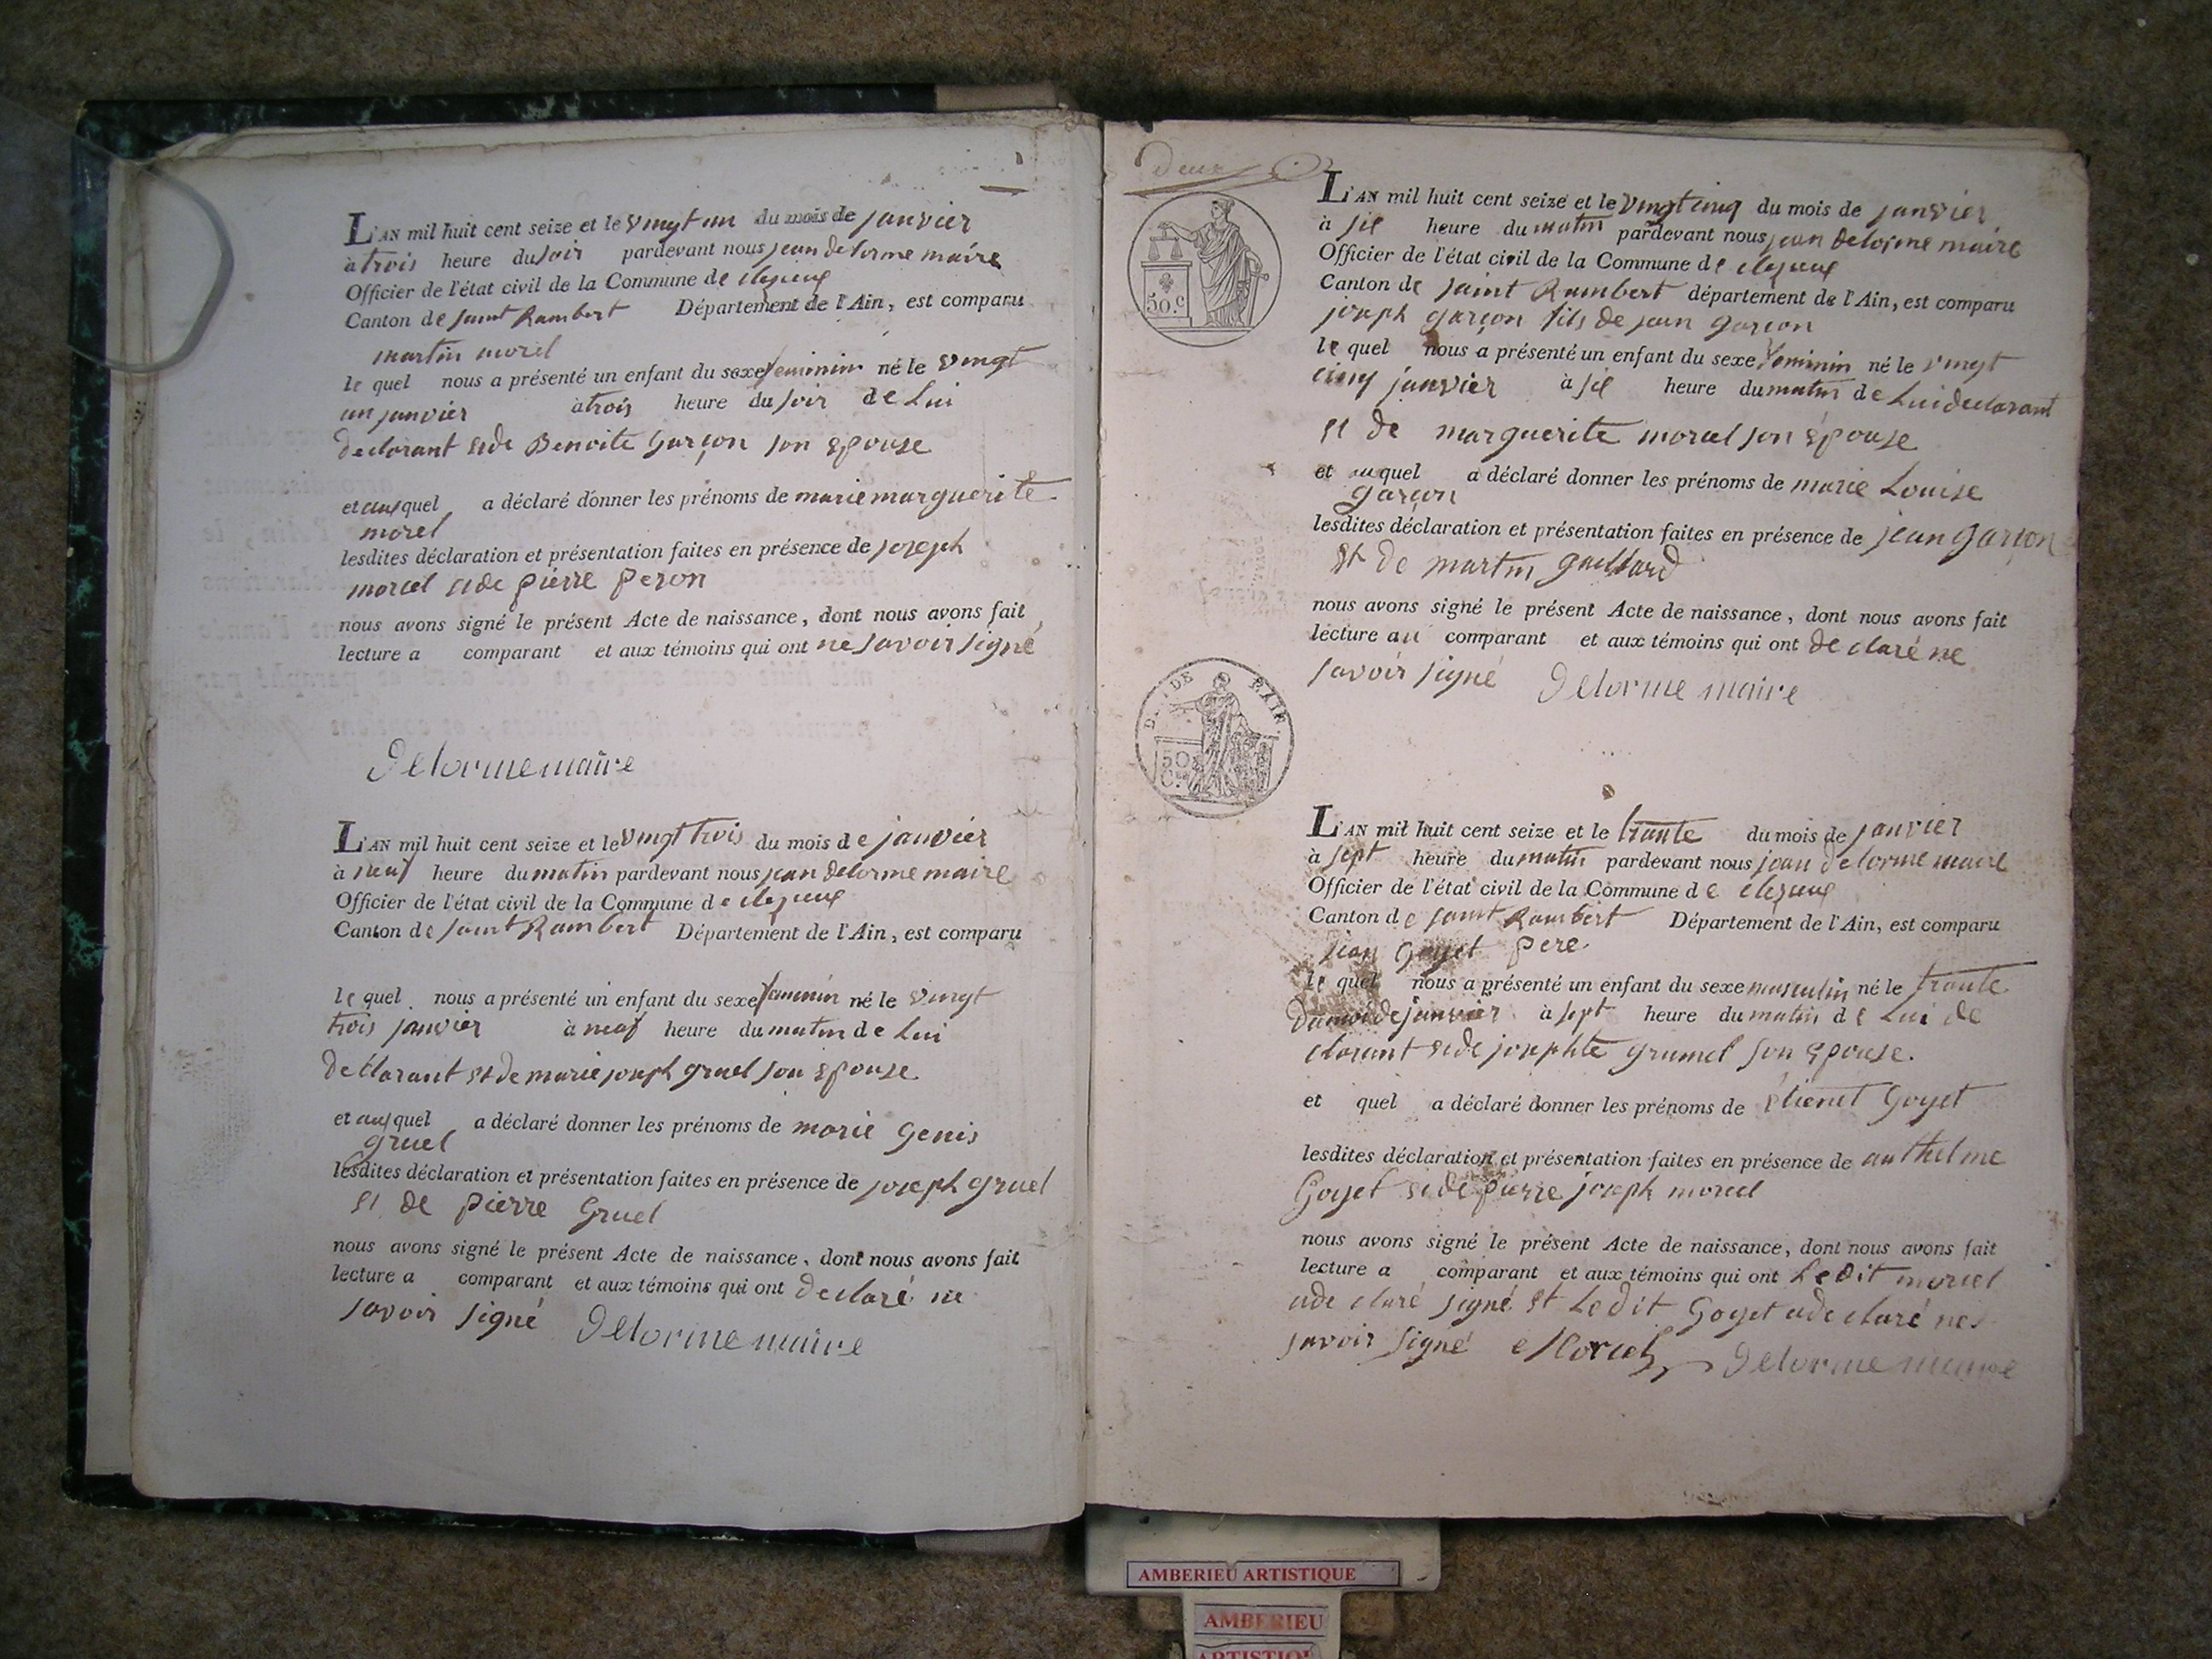 L'AN mil huit cent seize et le vingt un du mois de janvier
à trois heure du soir pardevant nous jean delorme maire
Officier de l'état civil de la Commune de cleyzieux
Canton de saint Rambert Département de l'Ain, est comparu
martin morel
le quel nous a présenté un enfant du sexe feminin né le vingt
un janvier à trois heure du soir de Lui
declarant et de Benoite Garçon son epouse
et auquel a déclaré donner les prénoms de marie marguerite
morel
lesdites déclaration et présentation faites en présence de joseph
morel et de pierre peron
nous avons signé le présent Acte de naissance, dont nous avons fait
lecture a comparant et aux témoins qui ont ne savoir signé
Delorme maire
L'AN mil huit cent seize et le vingt trois du mois de janvier
à neuf heure du matin pardevant nous jean delorme maire
Officier de l'état civil de la Commune de
Canton de saint Rambert Département de l'Ain, est comparu
le quel nous a présenté un enfant du sexe né le vingt
trois janvier à neuf heure du matin de Lui
declarant et de marie joseph gruel son epouse
et auquel a déclaré donner les prénoms de marie Genis
gruel
lesdites déclaration et présentation faites en présence de joseph gruel
et de pierre Gruel
nous avons signé le présent Acte de naissance, dont nous avons fait
lecture a comparant et aux témoins qui ont declaré ne
savoir signé Delorme maire
deux
50.c
L'AN mil huit cent seize et le vingt cinq du mois de janvier
à heure du matin pardevant nous jean delorme maire
Officier de l'état civil de la Commune de
Canton de saint Rambert département de l'Ain, est comparu
joseph garçon fils de jean garcon
le quel nous a présenté un enfant du sexe feminin né le vingt
cinq janvier à heure du matin de Lui declarant
et de marguerite morel son épouse
et au quel a déclaré donner les prénoms de marie Louise
garçon
lesdites déclaration et présentation faites en présence de jean garçon
et de martin gaillard
nous avons signé le présent Acte de naissance, dont nous avons fait
lecture au comparant et aux témoins qui ont de claré ne
savoir signé Delorme maire
50
L'AN mil huit cent seize et le trante du mois de janvier
à sept heure du matin pardevant nous jean delorme maire
Officier de l'état civil de la Commune de
Canton de saint Rambert Département de l'Ain, est comparu
jean Goyet pere
le quel nous a présenté un enfant du sexe masculin né le trante
du moi de janvier à sept heure du matin de Lui de
clarant et de josephte grumel son epouse.
et quel a déclaré donner les prénoms de Goyet
lesdites déclaration et présentation faites en présence de anthelme
Goyet et de pierre joseph morel
nous avons signé le présent Acte de naissance, dont nous avons fait
lecture a comparant et aux témoins qui ont Ledit morel
a de claré signé et Ledit Goyet a declaré ne
savoir signé Morel Delorme maire
AMBERIEU ARTISTIQUE
AMBERIEU
ARTISTIQUE